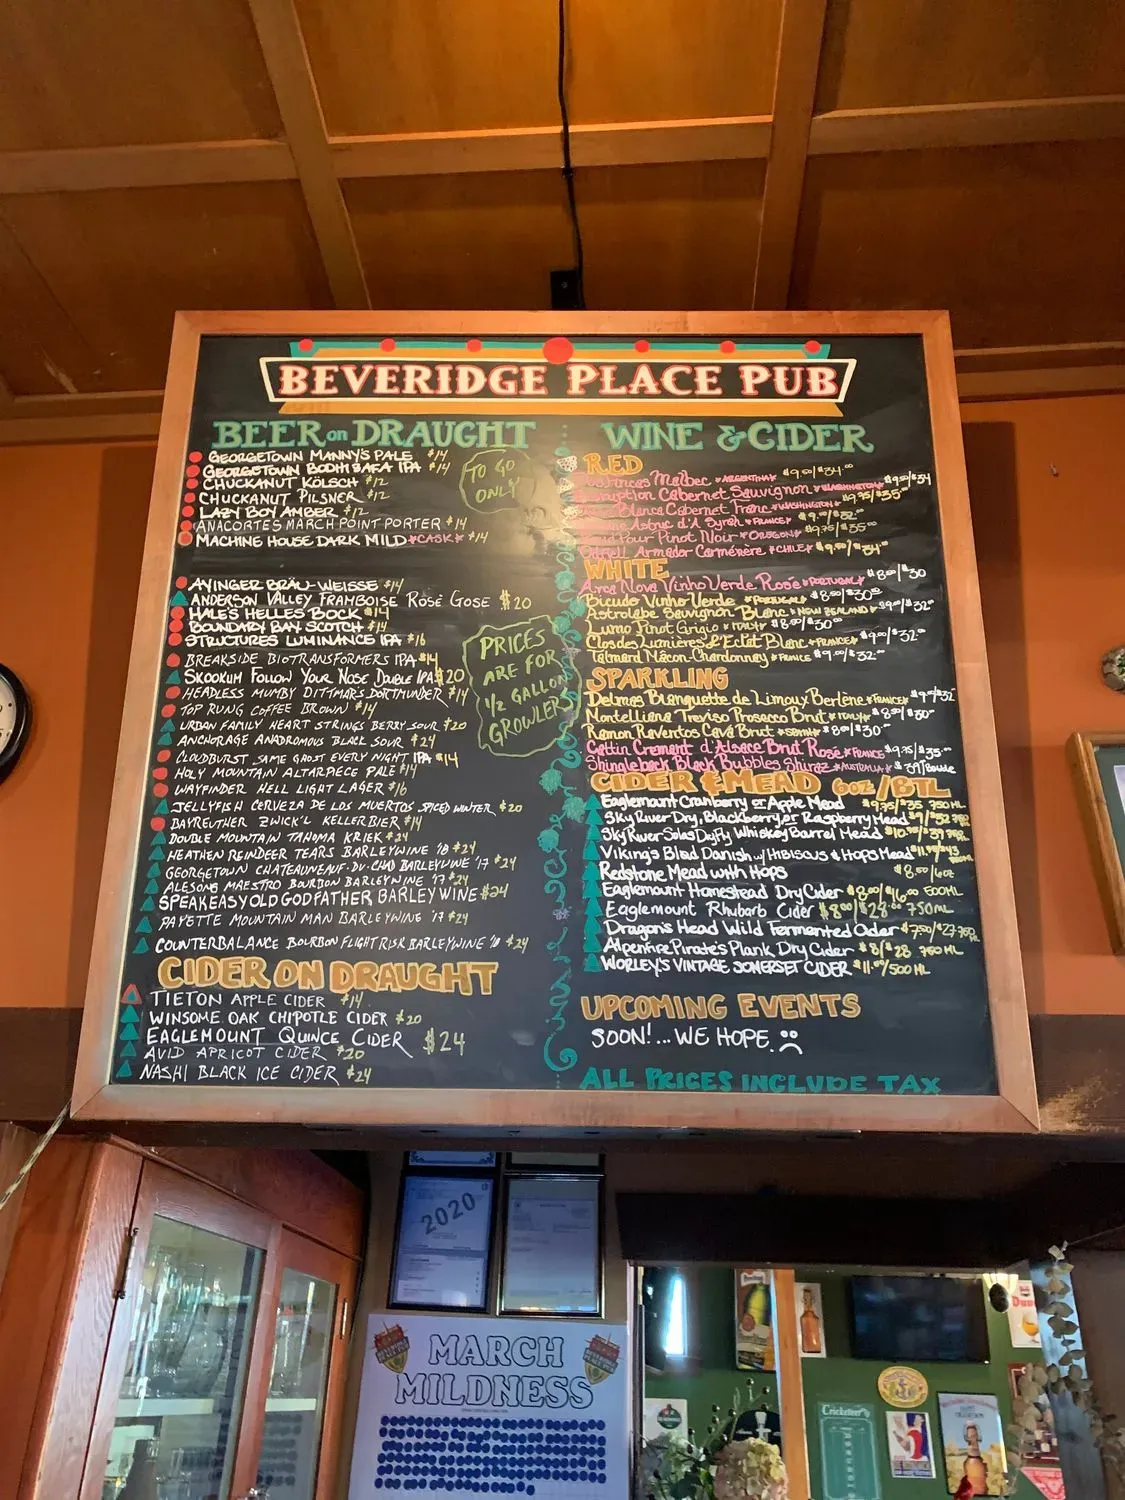 BEVERIDGE PLACE PUB
BEER on DRAUGHT
GEORGETOWN MANNY'S PALE $14
GEORGETOWN BODHIZAFA IPA $14
CHUCKANUT KÖLSCH $12
CHUCKANUT PILSNER $12
LAZY BOY AMBER $12
ANACORTES MARCH POINT PORTER $14
MACHINE HOUSE DARK MILD *CASK* $14
TO GO
ONLY
AYINGER BRÄU-WEISSE $14
ANDERSON VALLEY FRAMBOISE ROSÉ GOSE $20
HALE'S HELLES BOCK $14
BOUNDARY BAY SCOTCH $14
STRUCTURES LUMINANCE IPA $16
BREAKSIDE BIOTRANSFORMERS IPA $14
SKOOKUM FOLLOW YOUR NOSE DOUBLE IPA $20
HEADLESS MUMBY DITTMAR'S DORTMUNDER $14
TOP RUNG COFFEE BROWN $14
URBAN FAMILY HEART STRINGS BERRY SOUR $20
ANCHORAGE ANADROMOUS BLACK SOUR $24
CLOUDBURST SAME GHOST EVERY NIGHT IPA $14
HOLY MOUNTAIN ALTARPIECE PALE $14
WAYFINDER HELL LIGHT LAGER $16
JELLYFISH CERVEZA DE LOS MUERTOS SPICED WINTER $20
BAYREUTHER ZWICK'L KELLERBIER $14
DOUBLE MOUNTAIN TAHOMA KRIEK $24
HEATHEN REINDEER TEARS BARLEYWINE '18 $24
GEORGETOWN CHATEAUNEUF-DU-CHAD BARLEYWINE '17 $24
ALESONG MAESTRO BOURBON BARLEYWINE '17 $24
SPEAKEASY OLD GODFATHER BARLEYWINE $24
PAYETTE MOUNTAIN MAN BARLEYWINE '17 $24
COUNTERBALANCE BOURBON FLIGHT RISK BARLEYWINE '18 $24
PRICES
ARE FOR
1/2 GALLON
GROWLERS
CIDER ON DRAUGHT
TIETON APPLE CIDER $14
WINSOME OAK CHIPOTLE CIDER $20
EAGLEMOUNT QUINCE CIDER $24
AVID APRICOT CIDER $20
NASHI BLACK ICE CIDER $24
WINE & CIDER
RED
Malbec *ARGENTINA* $9.50/$34.00
Cabernet Sauvignon *WASHINGTON* $9.50/$34
Blanca Cabernet Franc *WASHINGTON* $9.75/$35.00
Astruc d'A Syrah *FRANCE* $9.00/$32.00
Pour Pinot Noir *OREGON* $9.75/$35.00
Armador Carménère *CHILE* $9.50/$34.00
WHITE
Arca Nova Vinho Verde Rosé *PORTUGAL* $8.50/$30
Bicudo Vinho Verde *PORTUGAL* $8.50/$30.00
Astrolabe Sauvignon Blanc *NEW ZEALAND* $9.00/$32.00
Lumo Pinot Grigio *ITALY* $8.50/$30.00
Clos des Lumières L'Eclat Blanc *FRANCE* $9.00/$32.00
Talmard Mâcon-Chardonnay *FRANCE $9.00/$32.00
SPARKLING
Delmas Blanquette de Limoux Berlène *FRANCE* $9.00/$32
Montelliana Treviso Prosecco Brut *ITALY* $8.50/$30.00
Ramon Raventos Cava Brut *SPAIN* $8.50/$30.00
Cattin Cremant d'Alsace Brut Rosé *FRANCE $9.75/$35.00
Shingleback Black Bubbles Shiraz *AUSTRALIA* $39/Bottle
CIDER & MEAD 6oz/BTL
Eaglemount Cranberry or Apple Mead $9.75/$35 750 ML
Sky River Dry, Blackberry or Raspberry Mead $9/$32 750 ML
Sky River Solas DuFly Whiskey Barrel Mead $10.75/$39 750 ML
Viking's Blod Danish w/ HIBISCUS & HOPS Mead $11.75/$43 750ML
Redstone Mead with Hops $8.50/6oz
Eaglemount Homestead Dry Cider $8.00/$16.00 500ML
Eaglemount Rhubarb Cider $8.00/$28.00 750ML
Dragon's Head Wild Fermented Cider $7.50/$27 750 ML
Alpenfire Pirate's Plank Dry Cider $8/$28 750 ML
WORLEY'S VINTAGE SOMERSET CIDER $11.50/500 ML
UPCOMING EVENTS
SOON!...WE HOPE.
ALL PRICES INCLUDE TAX
2020
MARCH
MILDNESS
Cricketeer